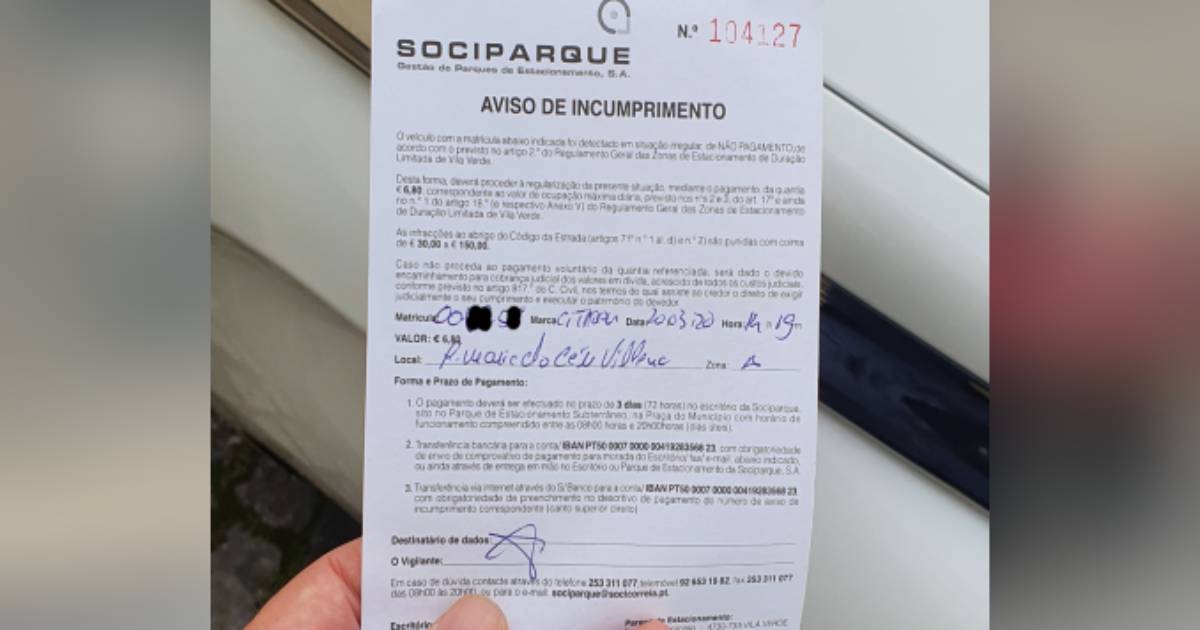 N.º 104127
SOCIPARQUE
Gestão de Parques de Estacionamento, S.A.
AVISO DE INCUMPRIMENTO
O veículo com a matrícula abaixo indicada foi detectado em situação irregular, de NÃO PAGAMENTO, de
acordo com o previsto no artigo 2.º do Regulamento Geral das Zonas de Estacionamento de Duração
Limitada de Vila Verde.
Desta forma, deverá proceder à regularização da presente situação, mediante o pagamento, da quantia
€ 6,80, correspondente ao valor de ocupação máxima diária, previsto nos nºs 2 e 3, do art. 17º e ainda
no n.º 1 do artigo 18.º (e respectivo Anexo V) do Regulamento Geral das Zonas de Estacionamento
de Duração Limitada de Vila Verde.
As infracções ao abrigo do Código da Estrada (artigos 71º n.º 1 al. d) e n.º 2) são punidas com coima
de € 30,00 a € 150,00.
Caso não proceda ao pagamento voluntário da quantia referenciada, será dado o devido
encaminhamento para cobrança judicial dos valores em dívida, acrescido de todos os custos judiciais,
conforme previsto no artigo 817.º do C. Civil, nos termos do qual assiste ao credor o direito de exigir
judicialmente o seu cumprimento e executar o património do devedor.
Matrícula 00 Marca Data 20 03 20 Hora 14 h 19 m
VALOR: € 6,80
Local: R. Maria do Céu Zona: A
Forma e Prazo de Pagamento:
1. O pagamento deverá ser efectuado no prazo de 3 dias (72 horas) no escritório da Sociparque,
sito no Parque de Estacionamento Subterrâneo, na Praça do Município com horário de
funcionamento compreendido entre as 08h00 horas e 20h00horas (dias úteis).
2. Transferência bancária para a conta/ IBAN PT50 0007 0000 00419283568 23, com obrigatoriedade
de envio de comprovativo de pagamento para morada do Escritório/ fax/ e-mail, abaixo indicado,
ou ainda através de entrega em mão no Escritório ou Parque de Estacionamento da Sociparque, S.A.
3. Transferência via internet através do S/Banco para a conta/ IBAN PT50 0007 0000 00419283568 23,
com obrigatoriedade de preenchimento no descritivo de pagamento do número de aviso de
incumprimento correspondente (canto superior direito)
Destinatário de dados:
O Vigilante:
Em caso de dúvida contacte através do telefone 253 311 077, telemóvel 92 653 19 82, fax 253 311 077
das 08h00 às 20h00, ou para o e-mail: sociparque@socicorreia.pt.
Escritório
Parque de Estacionamento:
4730-733 VILA VERDE